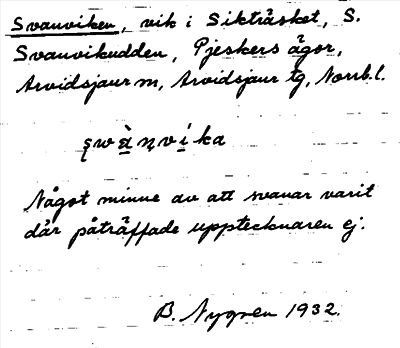 Svanviken, vik i Sikträsket, S.
Svanvikudden, Pjeskers ägor,
Arvidsjaur m, Arvidsjaur tg, Norrb. l.
Något minne av att svanar varit
där påträffade upptecknaren ej.
B. Nygren 1932.